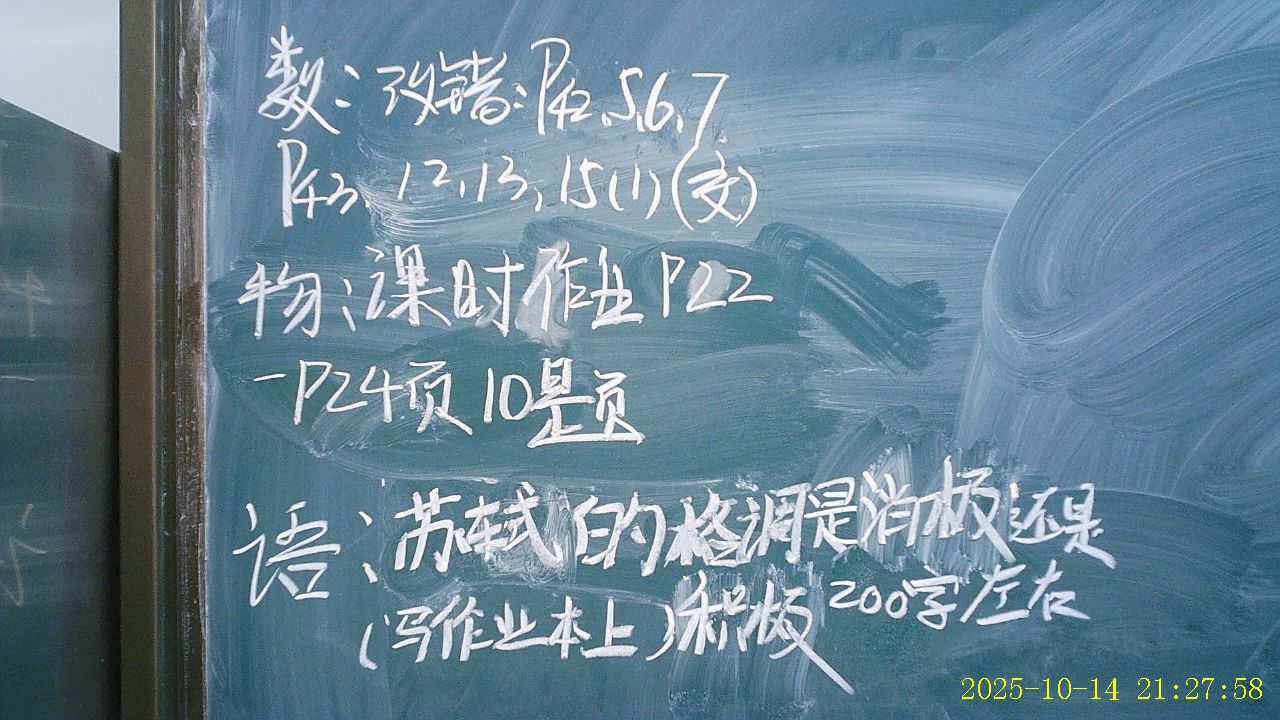 数：改错：P42、5、6、7
P43、12、13、15(1)(交)
物：课时作业 P22
-P24页 10是页
语：苏轼的格调是消极还是
(写作业本上)积极 200字左右
2025-10-14 21:27:58